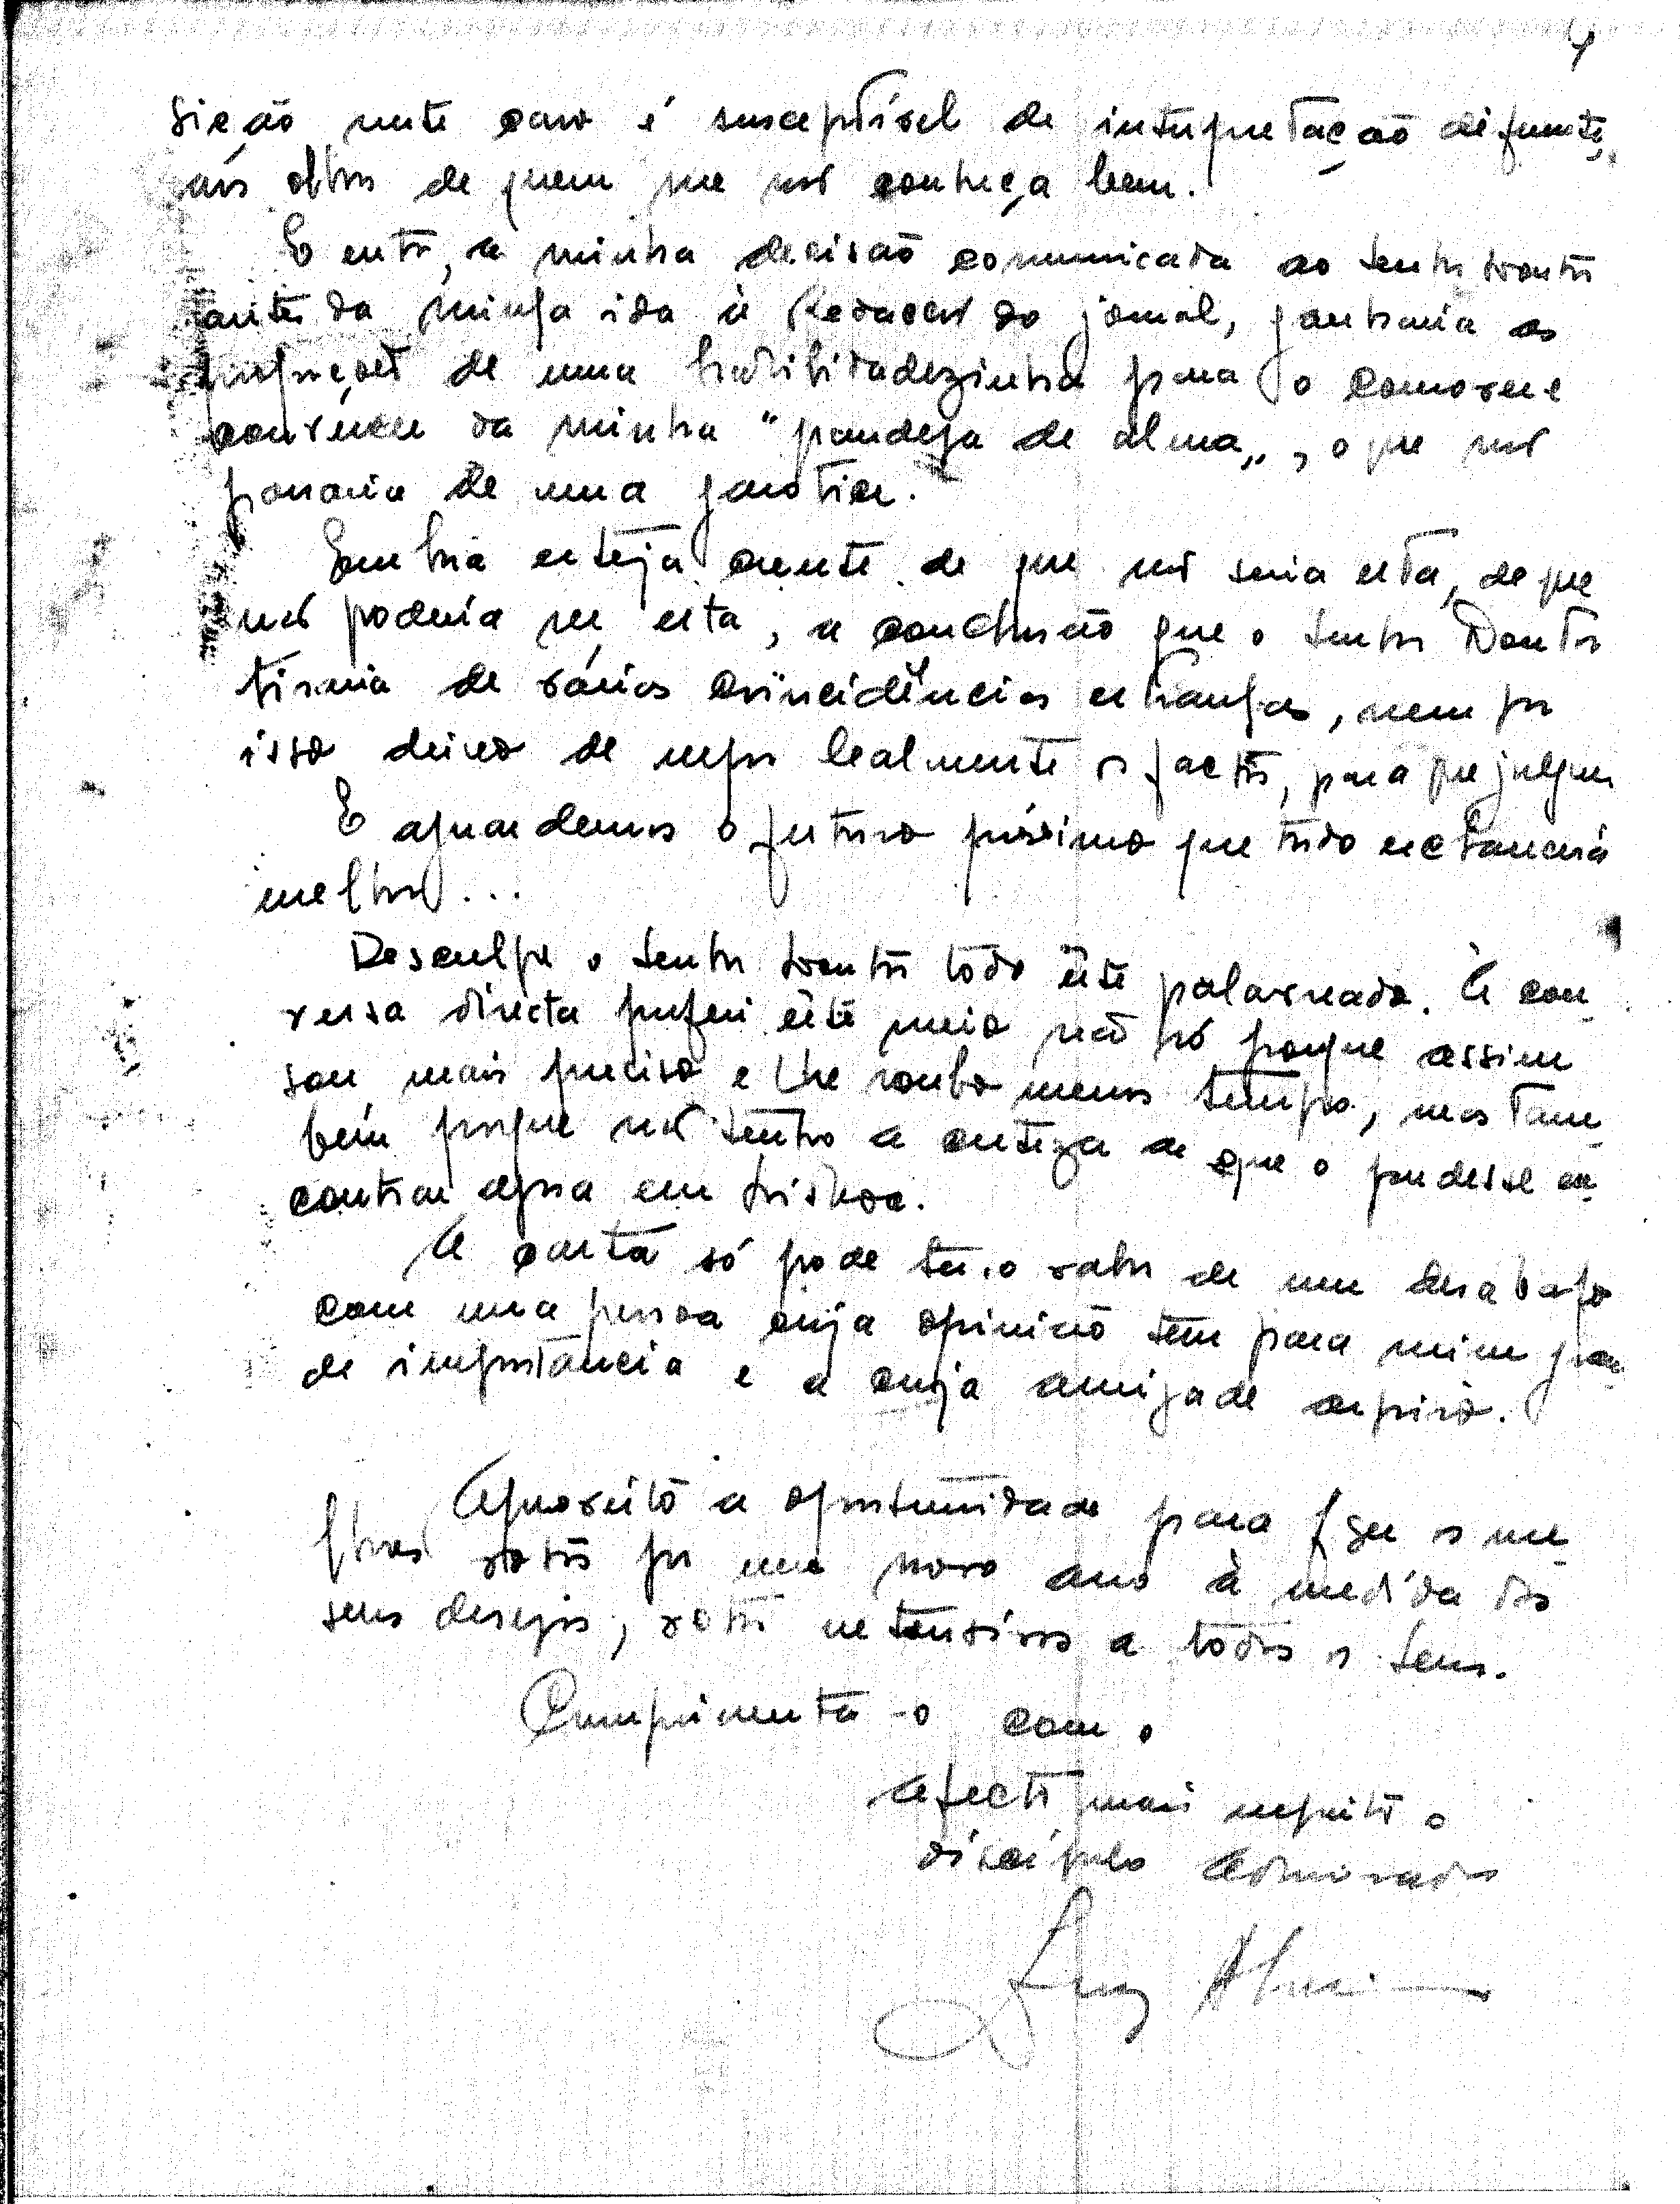 4
sição neste caso é susceptível de interpretação diferente,
aos olhos de quem me não conheça bem.
E então, a minha decisão comunicada ao Senhor Doutor
antes da minha ida à Redacção do jornal, ganharia as
proporções de uma habilidadezinha para o
convencer da minha "grandeza de alma", o que não
passaria de uma garotice.
Embora esteja crente de que não seria esta, de que
não poderia ser esta, a conclusão que o Senhor Doutor
tiraria de várias coincidências estranhas, nem por
isso deixo de expor lealmente os factos, para que julgue.
E aguardemos o futuro próximo que tudo esclarecerá
melhor...
Desculpe o Senhor Doutor todo êste palavreado. À con-
versa directa preferi êste meio não só porque assim
sou mais preciso e lhe roubo menos tempo, mas tam-
bém porque não tenho a certeza de que o pudesse en-
contrar agora em Lisboa.
A carta só pode ter o valor de um desabafo
com uma pessoa cuja opinião tem para mim gran-
de importância e a cuja amizade aspiro.
Aproveito a oportunidade para fazer os me-
lhores votos por um novo ano à medida dos
seus desejos, votos extensivos a todos os Seus.
Cumprimenta-o com o
afecto mais respeito o
discípulo admirador